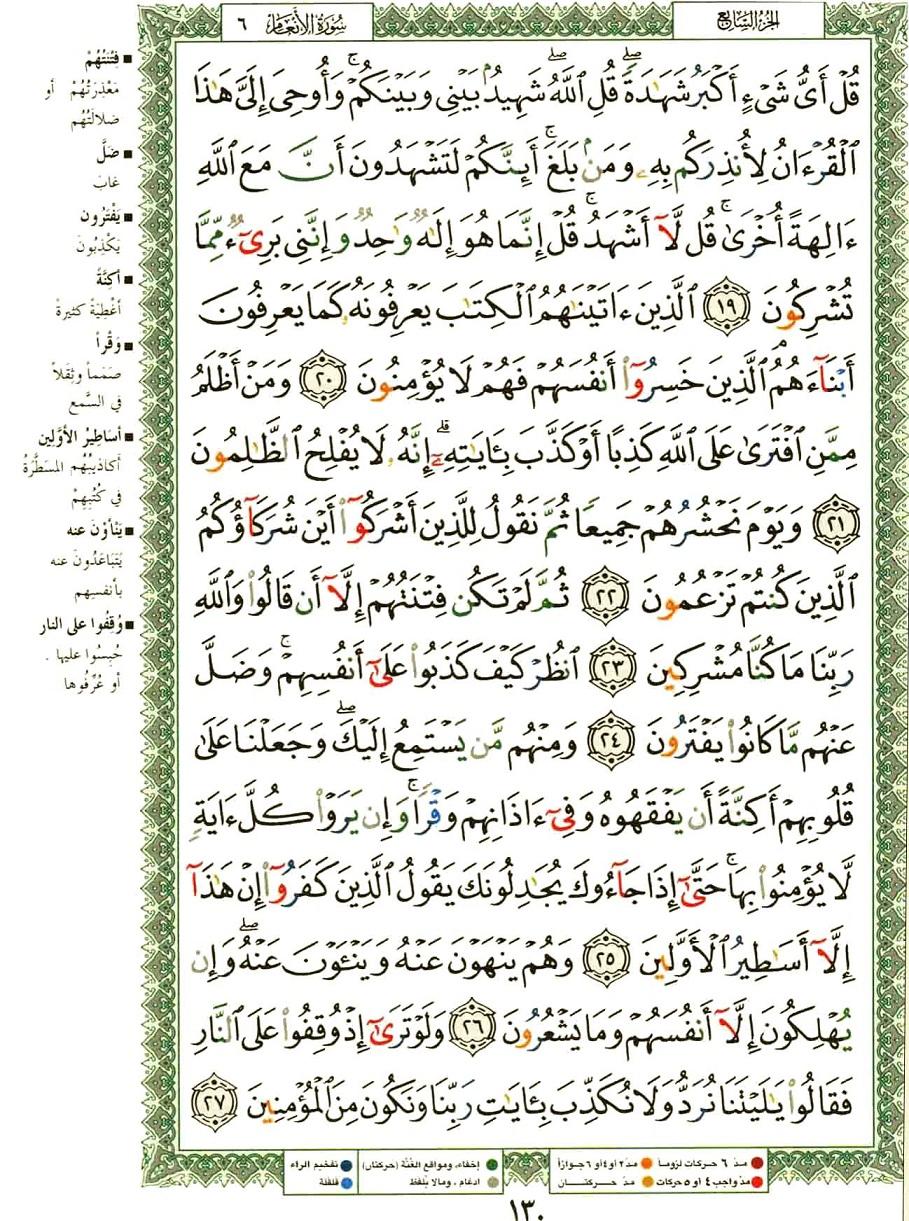 الجزء السابع
سورة الأنعام ٦
قُلْ أَىُّ شَىْءٍ أَكْبَرُ شَهَـٰدَةً ۖ قُلِ ٱللَّهُ ۖ شَهِيدٌۢ بَيْنِى وَبَيْنَكُمْ ۚ وَأُوحِىَ إِلَىَّ هَـٰذَا
ٱلْقُرْءَانُ لِأُنذِرَكُم بِهِۦ وَمَنۢ بَلَغَ ۚ أَئِنَّكُمْ لَتَشْهَدُونَ أَنَّ مَعَ ٱللَّهِ
ءَالِهَةً أُخْرَىٰ ۚ قُل لَّآ أَشْهَدُ ۚ قُلْ إِنَّمَا هُوَ إِلَـٰهٌ وَٰحِدٌ وَإِنَّنِى بَرِىٓءٌ مِّمَّا
تُشْرِكُونَ ١٩ ٱلَّذِينَ ءَاتَيْنَـٰهُمُ ٱلْكِتَـٰبَ يَعْرِفُونَهُۥ كَمَا يَعْرِفُونَ
أَبْنَآءَهُمُ ۘ ٱلَّذِينَ خَسِرُوٓا۟ أَنفُسَهُمْ فَهُمْ لَا يُؤْمِنُونَ ٢٠ وَمَنْ أَظْلَمُ
مِمَّنِ ٱفْتَرَىٰ عَلَى ٱللَّهِ كَذِبًا أَوْ كَذَّبَ بِـَٔايَـٰتِهِۦٓ ۗ إِنَّهُۥ لَا يُفْلِحُ ٱلظَّـٰلِمُونَ
٢١ وَيَوْمَ نَحْشُرُهُمْ جَمِيعًا ثُمَّ نَقُولُ لِلَّذِينَ أَشْرَكُوٓا۟ أَيْنَ شُرَكَآؤُكُمُ
ٱلَّذِينَ كُنتُمْ تَزْعُمُونَ ٢٢ ثُمَّ لَمْ تَكُن فِتْنَتُهُمْ إِلَّآ أَن قَالُوا۟ وَٱللَّهِ
رَبِّنَا مَا كُنَّا مُشْرِكِينَ ٢٣ ٱنظُرْ كَيْفَ كَذَبُوا۟ عَلَىٰٓ أَنفُسِهِمْ ۚ وَضَلَّ
عَنْهُم مَّا كَانُوا۟ يَفْتَرُونَ ٢٤ وَمِنْهُم مَّن يَسْتَمِعُ إِلَيْكَ ۖ وَجَعَلْنَا عَلَىٰ
قُلُوبِهِمْ أَكِنَّةً أَن يَفْقَهُوهُ وَفِىٓ ءَاذَانِهِمْ وَقْرًا ۚ وَإِن يَرَوْا۟ كُلَّ ءَايَةٍ
لَّا يُؤْمِنُوا۟ بِهَا ۚ حَتَّىٰٓ إِذَا جَآءُوكَ يُجَـٰدِلُونَكَ يَقُولُ ٱلَّذِينَ كَفَرُوٓا۟ إِنْ هَـٰذَآ
إِلَّآ أَسَـٰطِيرُ ٱلْأَوَّلِينَ ٢٥ وَهُمْ يَنْهَوْنَ عَنْهُ وَيَنْـَٔوْنَ عَنْهُ ۖ وَإِن
يُهْلِكُونَ إِلَّآ أَنفُسَهُمْ وَمَا يَشْعُرُونَ ٢٦ وَلَوْ تَرَىٰٓ إِذْ وُقِفُوا۟ عَلَى ٱلنَّارِ
فَقَالُوا۟ يَـٰلَيْتَنَا نُرَدُّ وَلَا نُكَذِّبَ بِـَٔايَـٰتِ رَبِّنَا وَنَكُونَ مِنَ ٱلْمُؤْمِنِينَ ٢٧
■ فِتْنَتُهُمْ
مَعْذِرَتُهُمْ أو
ضلالَتُهُم
■ ضَلَّ
غابَ
■ يَفْتَرُون
يَكْذِبُونَ
■ أكِنَّةً
أغْطِيَةً كثيرةً
■ وَقْراً
صَمَماً وثِقَلاً
في السَّمع
■ أساطِيرُ الأوَّلِين
أكاذيبُهم المسَطَّرَةُ
في كُتُبِهِمْ
■ يَنْأوْنَ عنه
يَتَبَاعَدُونَ عنه
بأنفسِهِم
■ وُقِفُوا على النار
حُبِسُوا عليها .
أو عُرِّفُوها
● مدّ ٦ حركات لزوماً ● مدّ ٢ او ٤ او ٦ جوازاً
● مدّ واجب ٤ او ٥ حركات ● مدّ حــركتــــان
● إخفاء، ومواقع الغُنَّة (حركتان) ● تفخيم الراء
● ادغام ، ومالا يُلفظ ● قلقلة
١٣٠